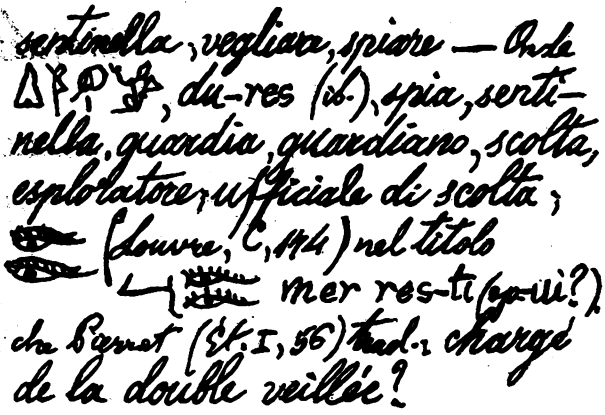 sentinella, vegliare, spiare — Onde
, du-res (ib.), spia, senti-
nella, guardia, guardiano, scolta,
esploratore, ufficiale di scolta;
(Louvre, C, ) nel titolo
mer res-ti
che Pierret (Ét. I, 56) trad.: chargé
de la double veillée?